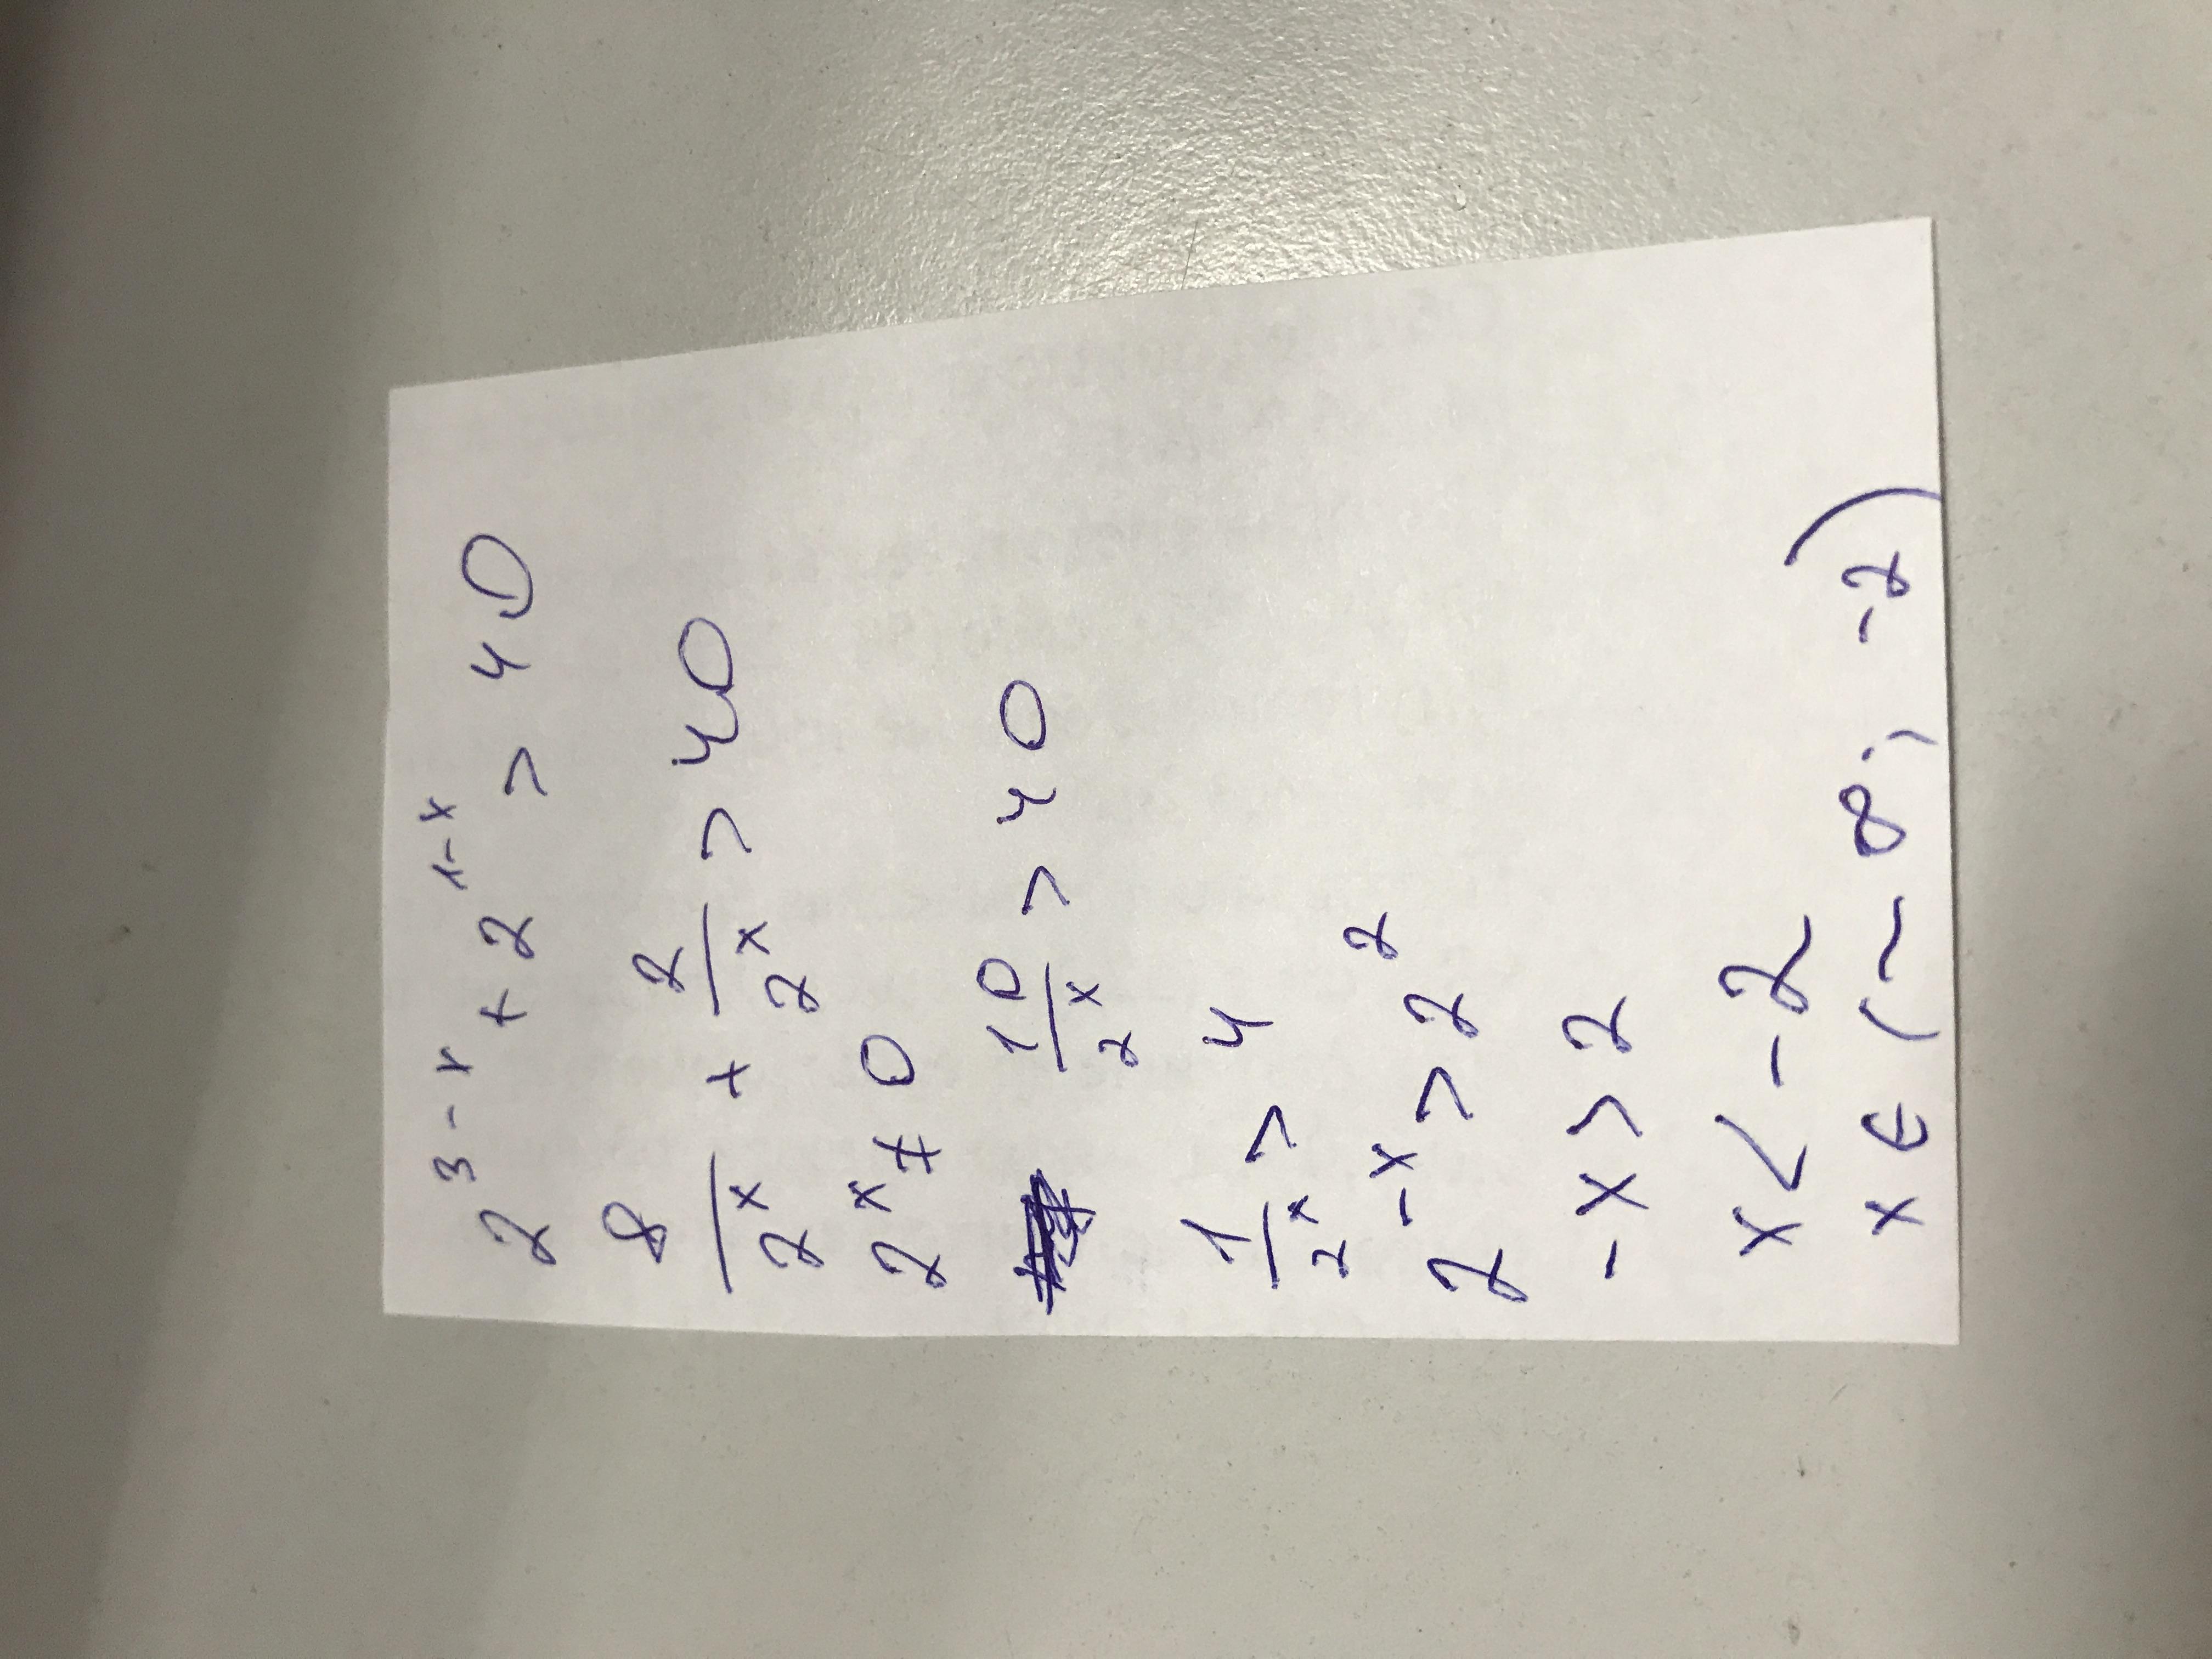 2^{3-x} + 2^{1-x} > 40
8/2^x + 2/2^x > 40
2^x ≠ 0
10/2^x > 40
1/2^x > 4
2^{-x} > 2^2
-x > 2
x < -2
x ∈ (-∞; -2)